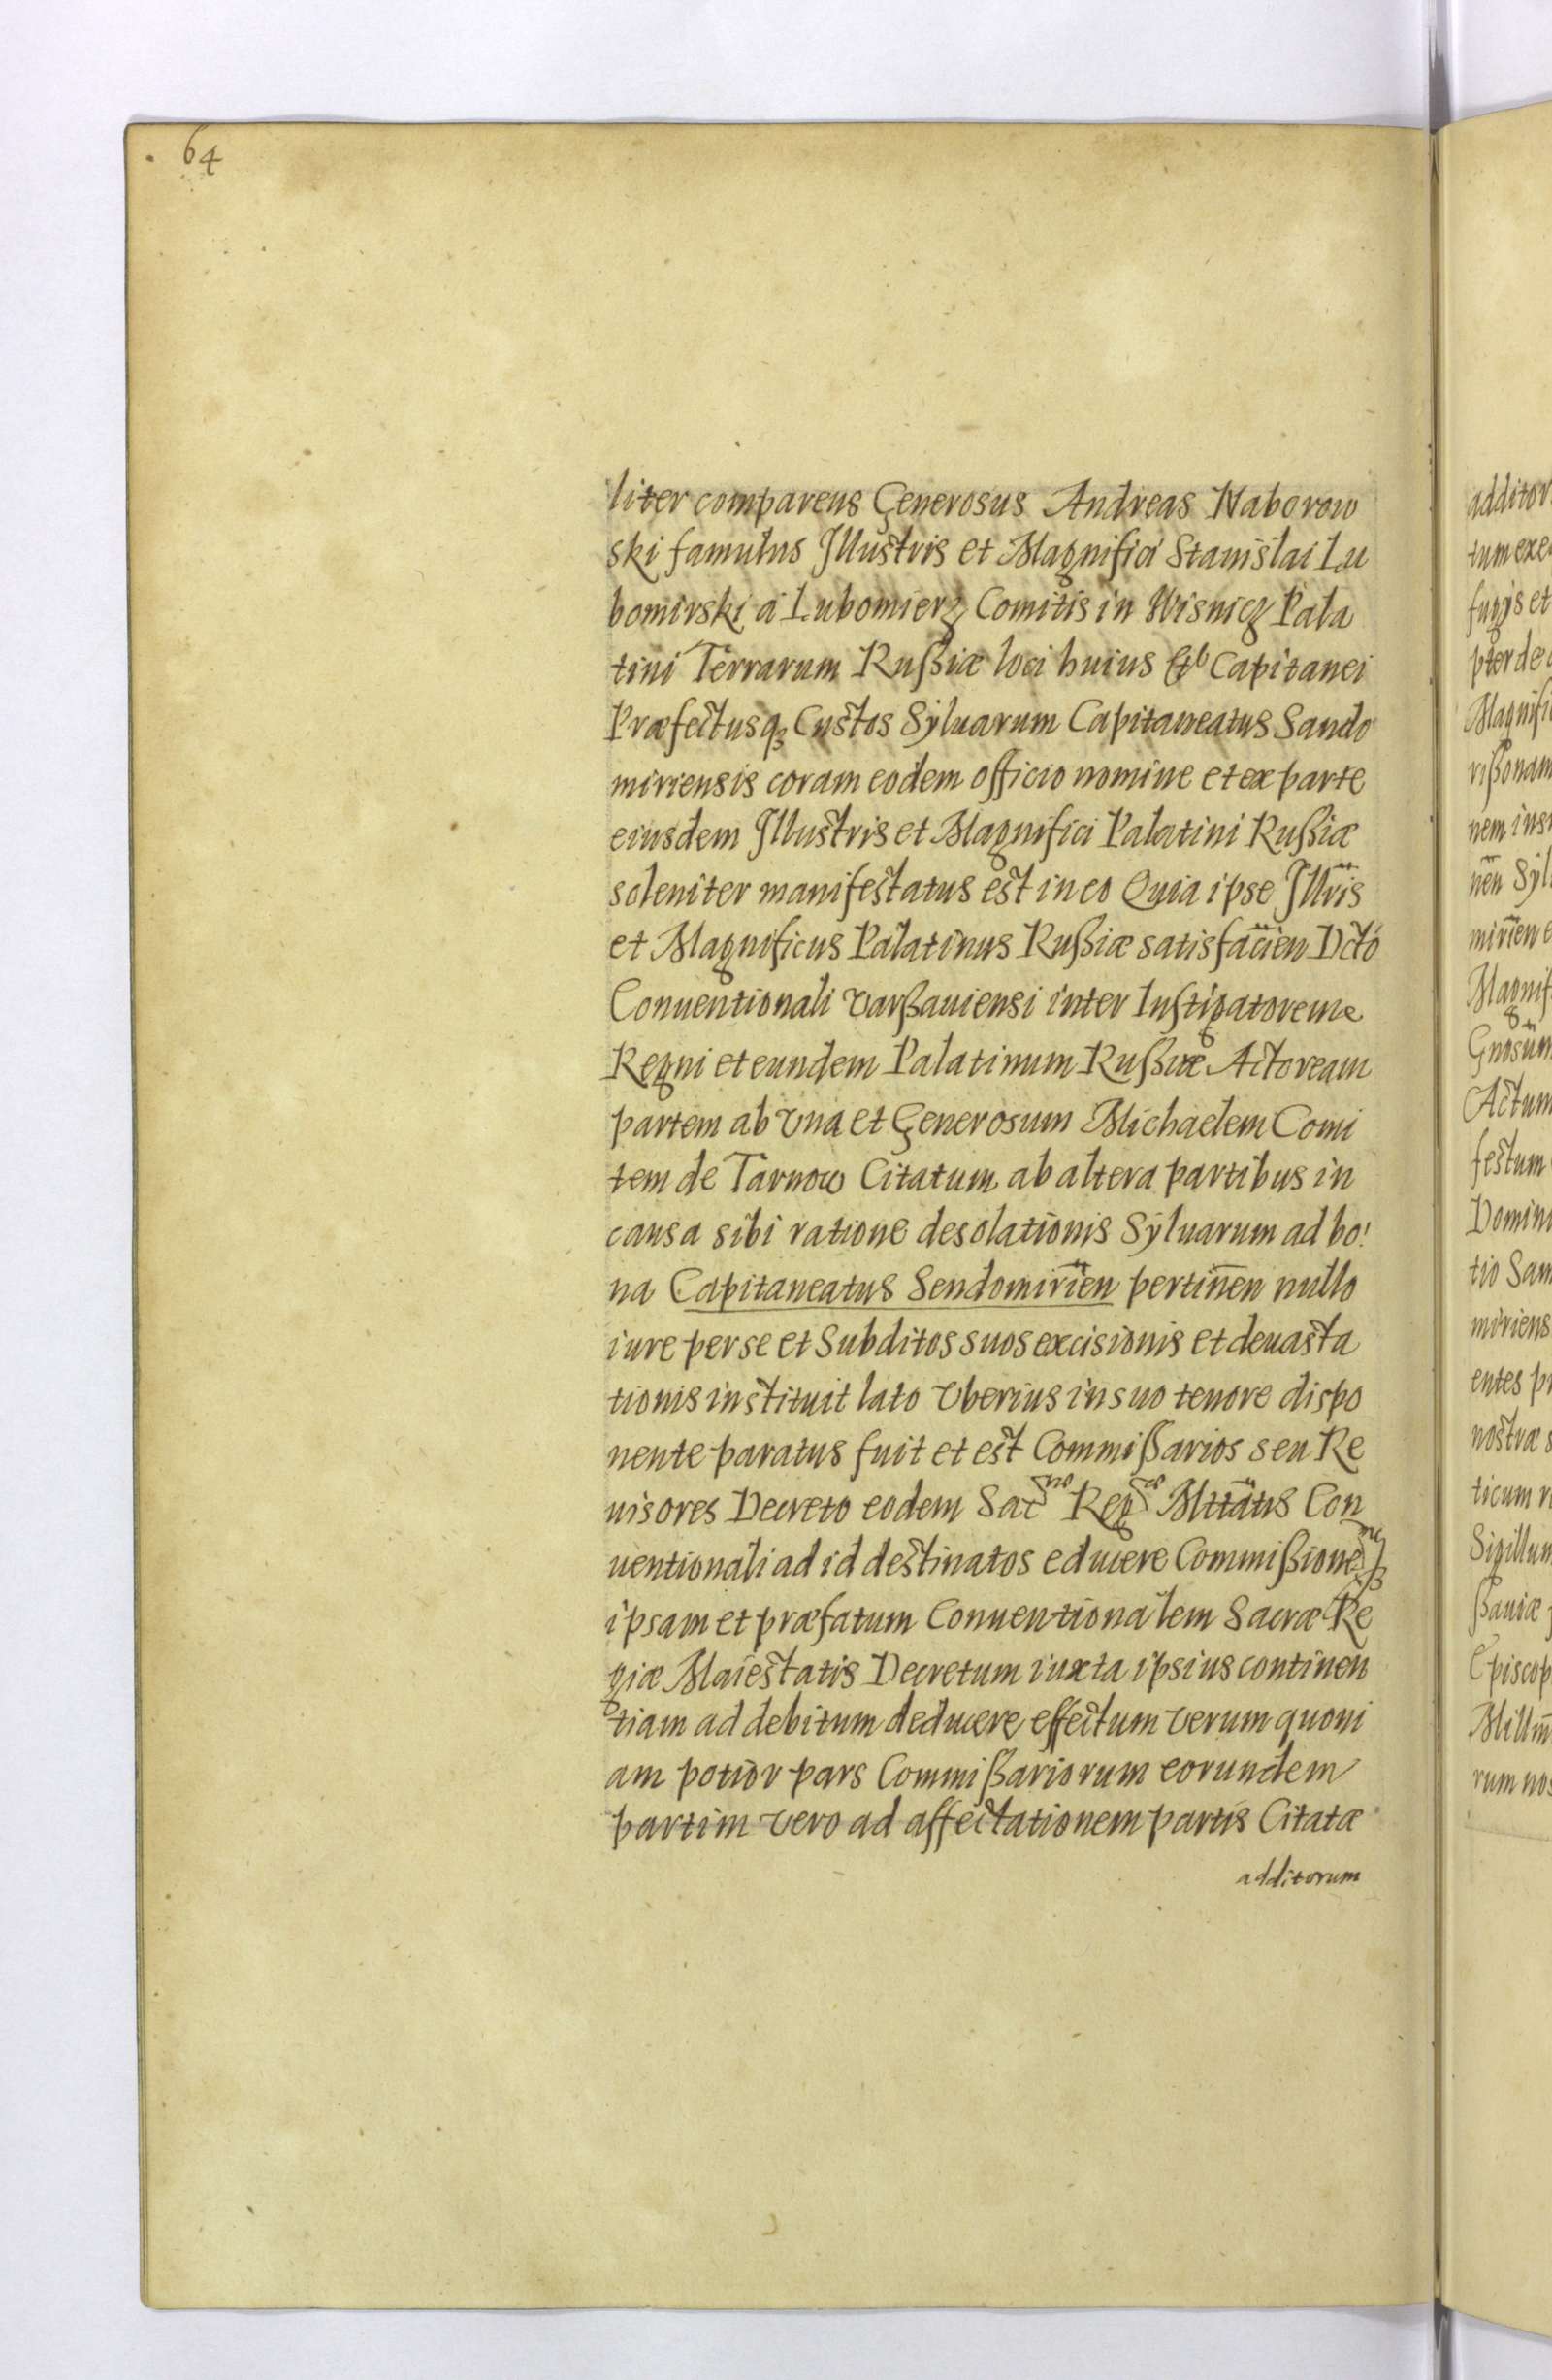 64
liter comparens Generosus Andreas Naborow
ski famulus Illustris et Magnifici Stanislai Lu
bomirski á Lubomierz Comitis in Wisnicz Pala
tini Terrarum Rußiæ loci huius Capitanei
Præfectusqȝ Custos Syluarum Capitaneatus Sando
miriensis coram eodem officio nomine et ex parte
eiusdem Illustris et Magnifici Palatini Rußiæ
soleniter manifestatus est in eo Quia ipse Illris
et Magnificus Palatinus Rußiæ satisfacien Dcto
Conuentionali Varßauiensi inter Instigatorem
Regni et eundem Palatinum Rußiæ Actoream
partem ab Vna et Generosum Michaelem Comi
tem de Tarnow Citatum ab altera partibus in
causa sibi ratione desolationis Syluarum ad bo
na Capitaneatus Sendomirien pertinen nullo
iure per se et Subditos suos excisionis et deuasta
tionis instituit lato Vberius in suo tenore dispo
nente paratus fuit et est Commißarios seu Re
uisores Decreto eodem Sac Reg Mttatis Con
uentionali ad id destinatos educere Commißione
ipsam et præfatum Conuentionalem Sacræ Re
giæ Maiestatis Decretum iuxta ipsius continen
tiam ad debitum deducere effectum Verum quoni
am potior pars Commißariorum eorundem
partim Vero ad affectationem partis Citatæ
additorum
additor
tum exe
fugjs et
pter de
Magnifi
rißonam
nem ins
nen Syl
mirien e
Magnif
Gnosum
Actum
festum
Domini
tio San
miriens
entes pr
nostræ s
ticum r
Sigillum
ßauiæ
Episcop
Millm
rum nos